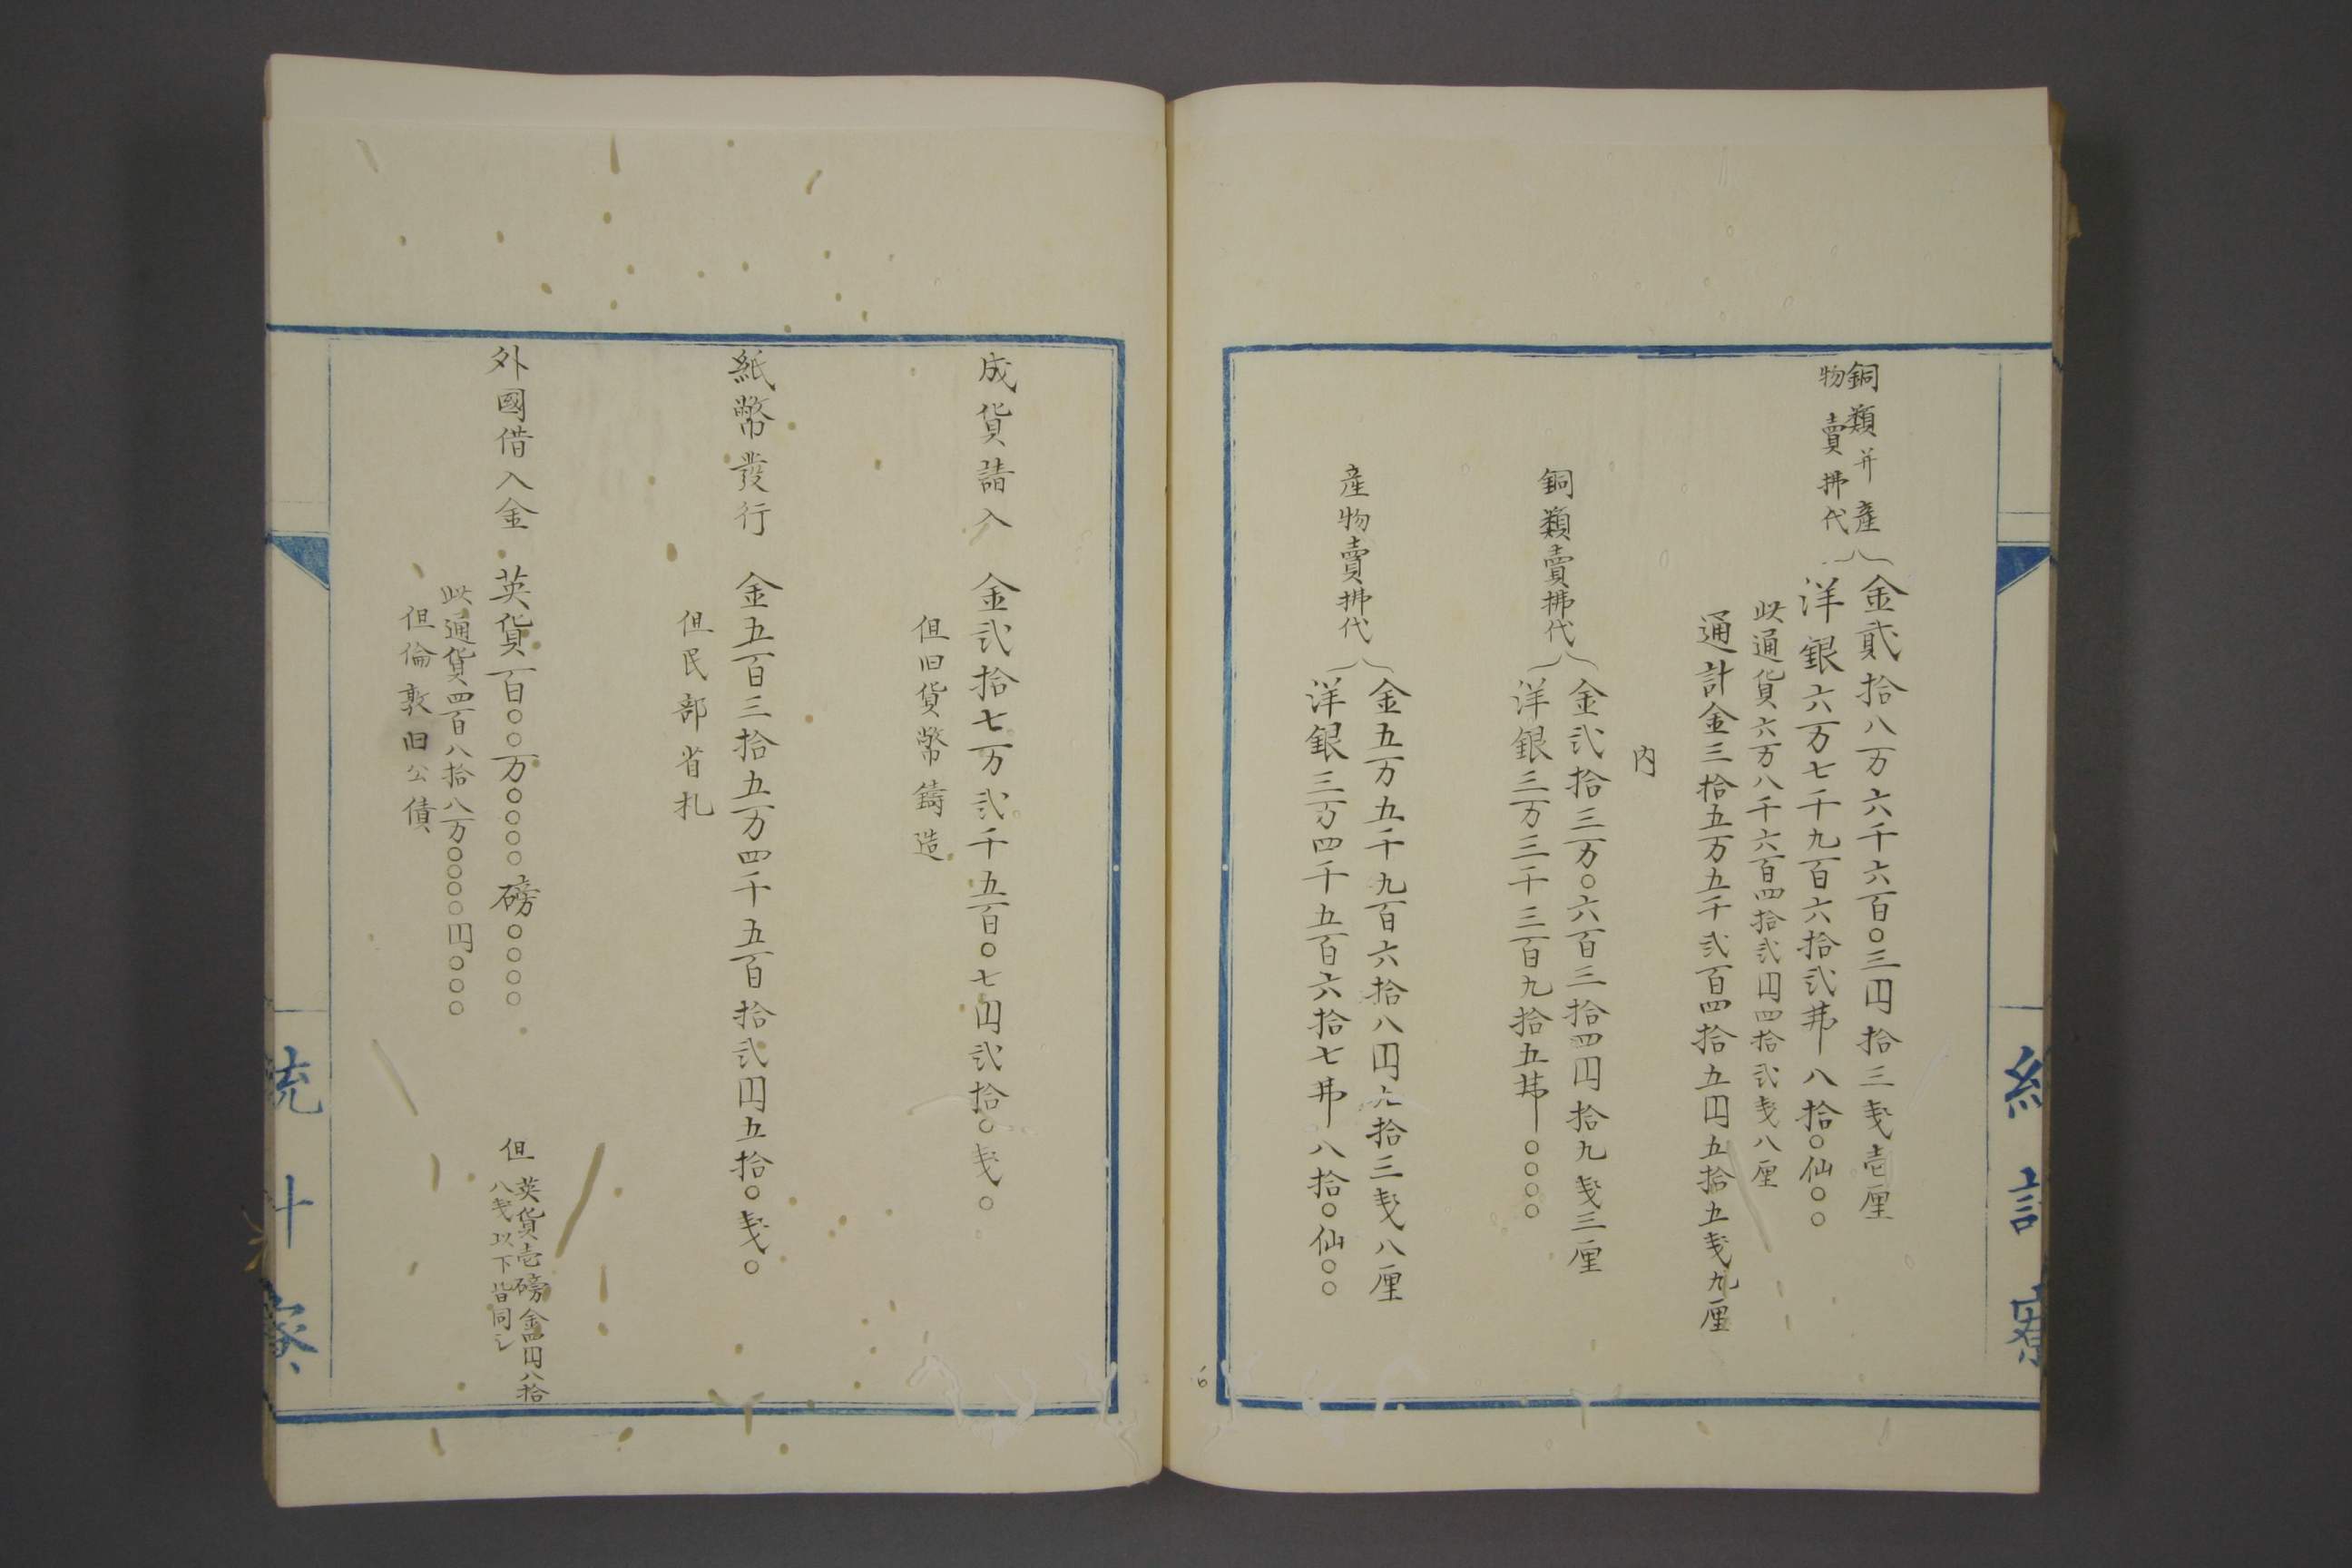 銅類并産
物賣拂代
金貳拾八万六千六百〇三円拾三戋壱厘
洋銀六万七千九百六拾弐弗八拾〇仙〇〇
此通貨六万八千六百四拾弐円四拾弐戋八厘
通計金三拾五万五千弐百四拾五円五拾五戋九厘
内
銅類賣拂代
金弐拾三万〇六百三拾四円拾九戋三厘
洋銀三万三千三百九拾五弗〇〇〇〇
産物賣拂代
金五万五千九百六拾八円九拾三戋八厘
洋銀三万四千五百六拾七弗八拾〇仙〇〇
6
成貨請入 金弐拾七万弐千五百〇七円弐拾〇戋〇
但旧貨幣鑄造
紙幣發行 金五百三拾五万四千五百拾弐円五拾〇戋〇
但民部省札
外國借入金 英貨一百〇〇万〇〇〇〇磅〇〇〇〇
但英貨壱磅金四円八拾
八戋以下皆同シ
此通貨四百八拾八万〇〇〇〇円〇〇〇
但倫敦旧公債
統計寮